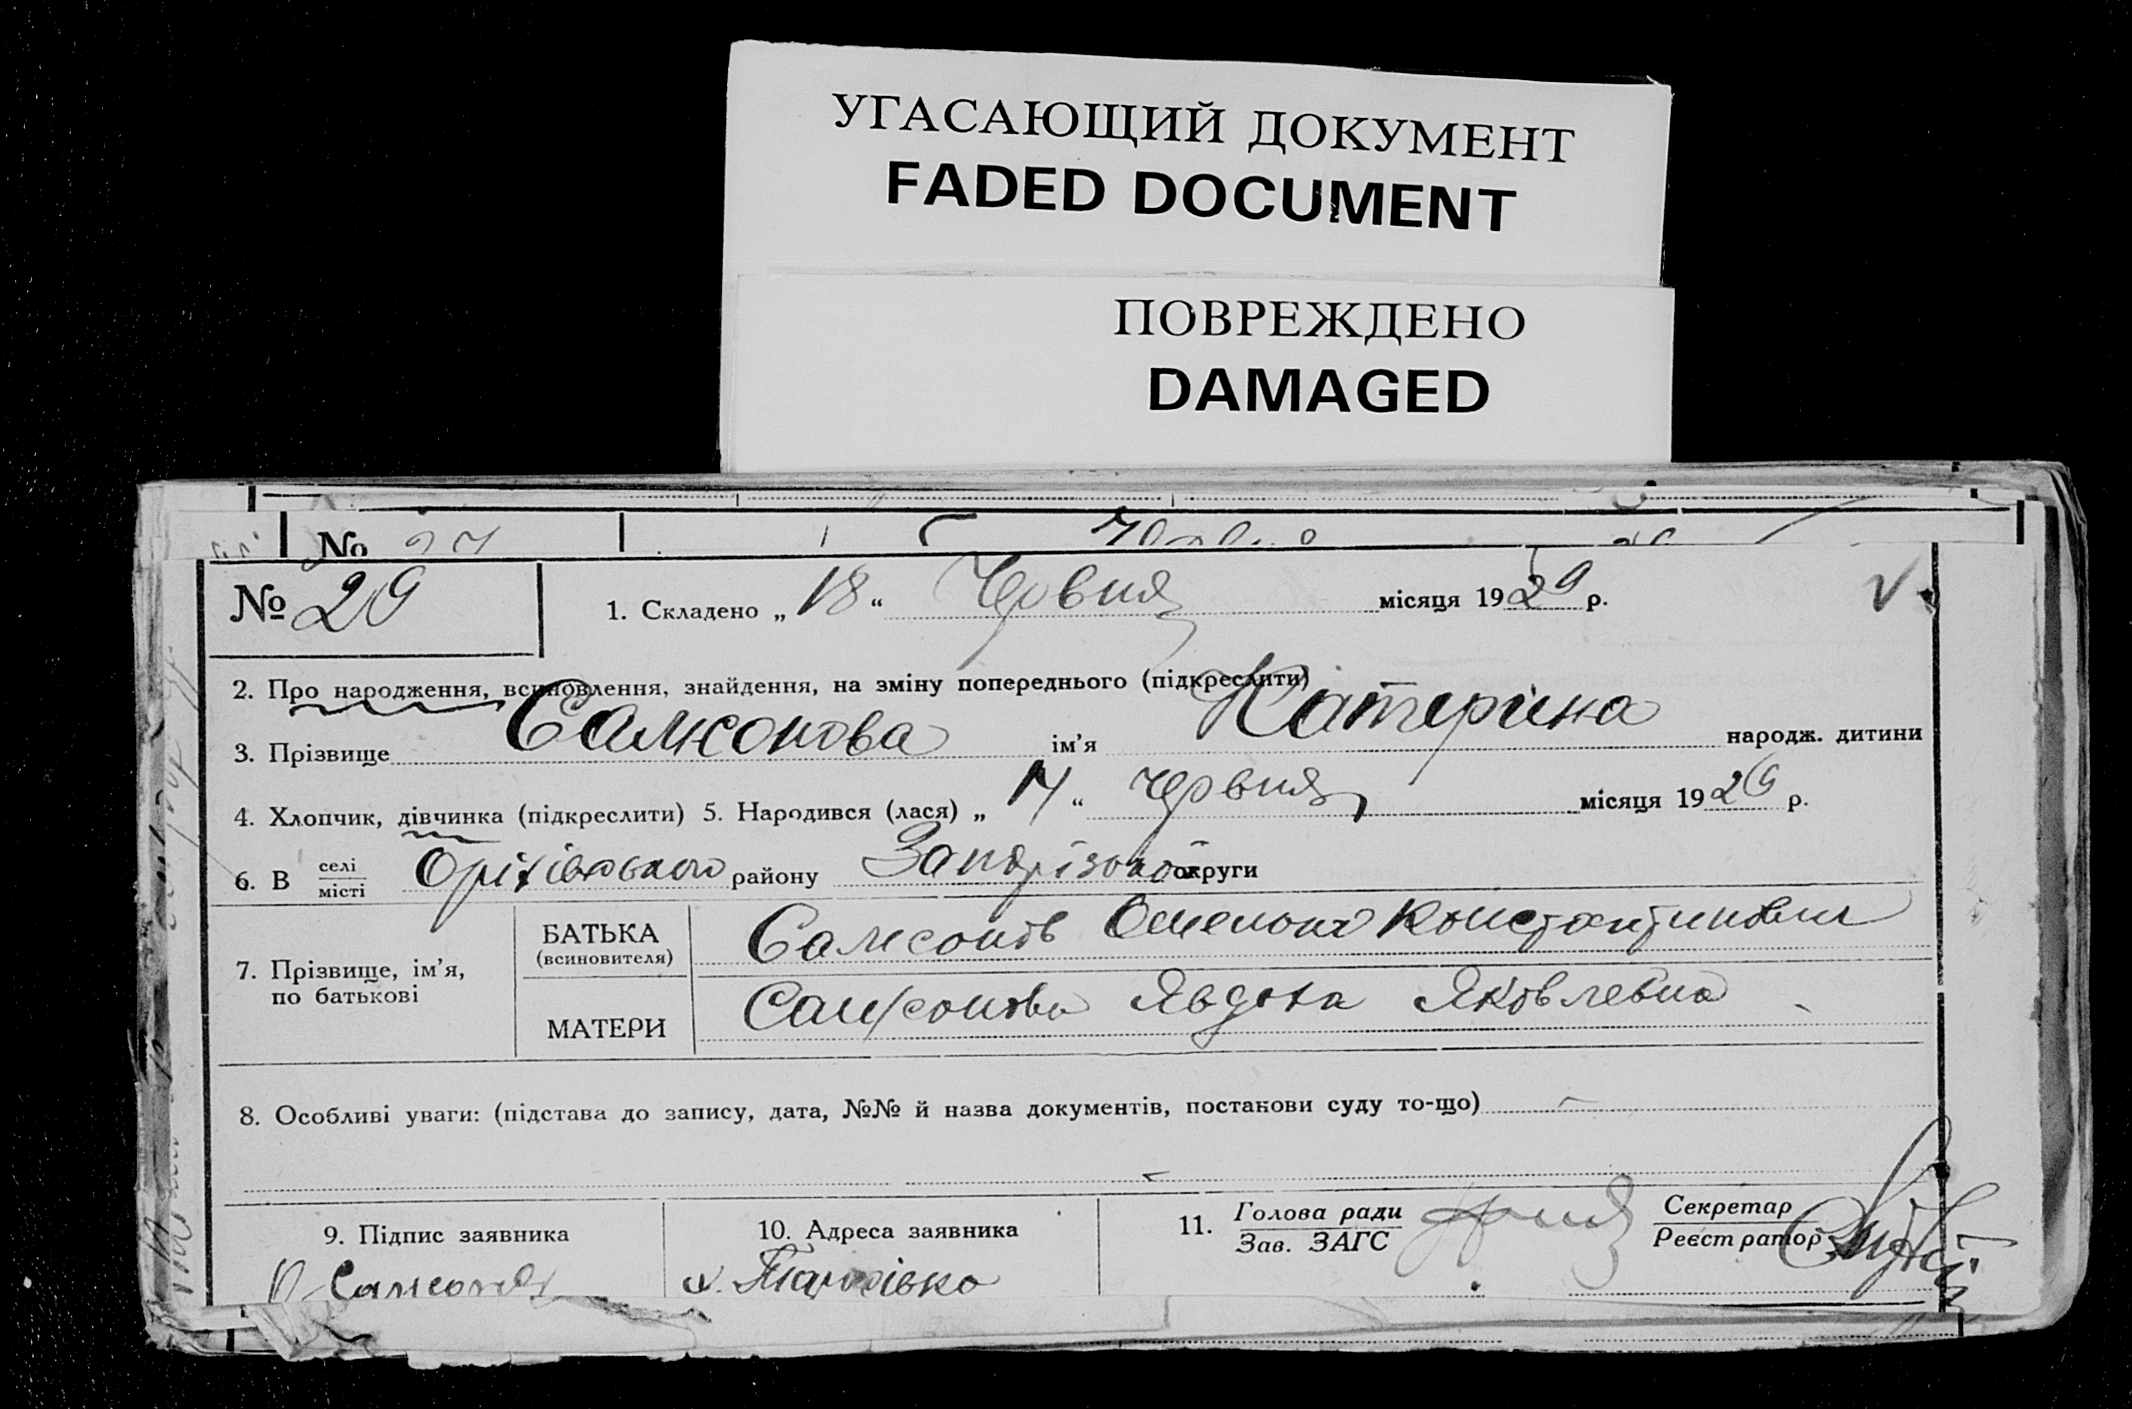 УГАСАЮЩИЙ ДОКУМЕНТ
FADED DOCUMENT
ПОВРЕЖДЕНО
DAMAGED
№
№ 29
1. Складено „ 18 “ Червня місяця 1929 р.
2. Про народження, всиновлення, знайдення, на зміну попереднього (підкреслити)
3. Прізвище Самсонова ім’я Катеріна народж. дитини
4. Хлопчик, дівчинка (підкреслити) 5. Народився (лася) „ “ червня місяця 1929 р.
6. В селі місті Оріхівського району Запорізької округи
7. Прізвище, ім’я, по батькові
БАТЬКА (всиновителя) Самсонов Константинович
МАТЕРИ Самсонова Явдоха Яковлевна
8. Особливі уваги: (підстава до запису, дата, №№ й назва документів, постанови суду то-що)
9. Підпис заявника
10. Адреса заявника
11. Голова ради Зав. ЗАГС
Секретар Реєстратор